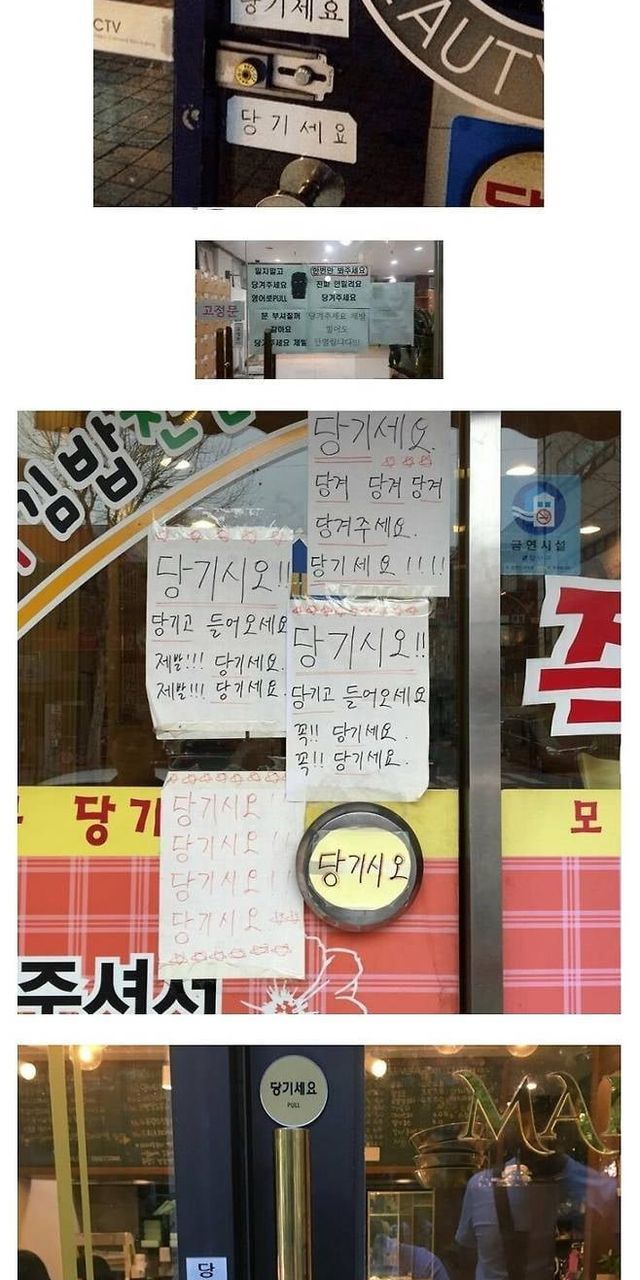 당기세요
CTV
EAUTY
당기세요
밀지말고
당겨주세요
영어로PULL
한번만 봐주세요
진짜 안밀려요
당겨주세요
고정문
문 부셔질꺼
같아요
당겨주세요 제발
당겨주세요 제발
밀어도
안열립니다!!!
김밥천
당기세요.
당겨 당겨 당겨
당겨주세요.
당기세요!!!!
금연시설
당기시오!!
당기고 들어오세요
제발!!! 당기세요.
제발!!! 당기세요.
당기시오!!
당기고 들어오세요
꼭!! 당기세요.
꼭!! 당기세요.
당기
모
당기시오!!
당기시오!!
당기시오!!
당기시오
당기시오
주셔서
당기세요
PULL
MA
당